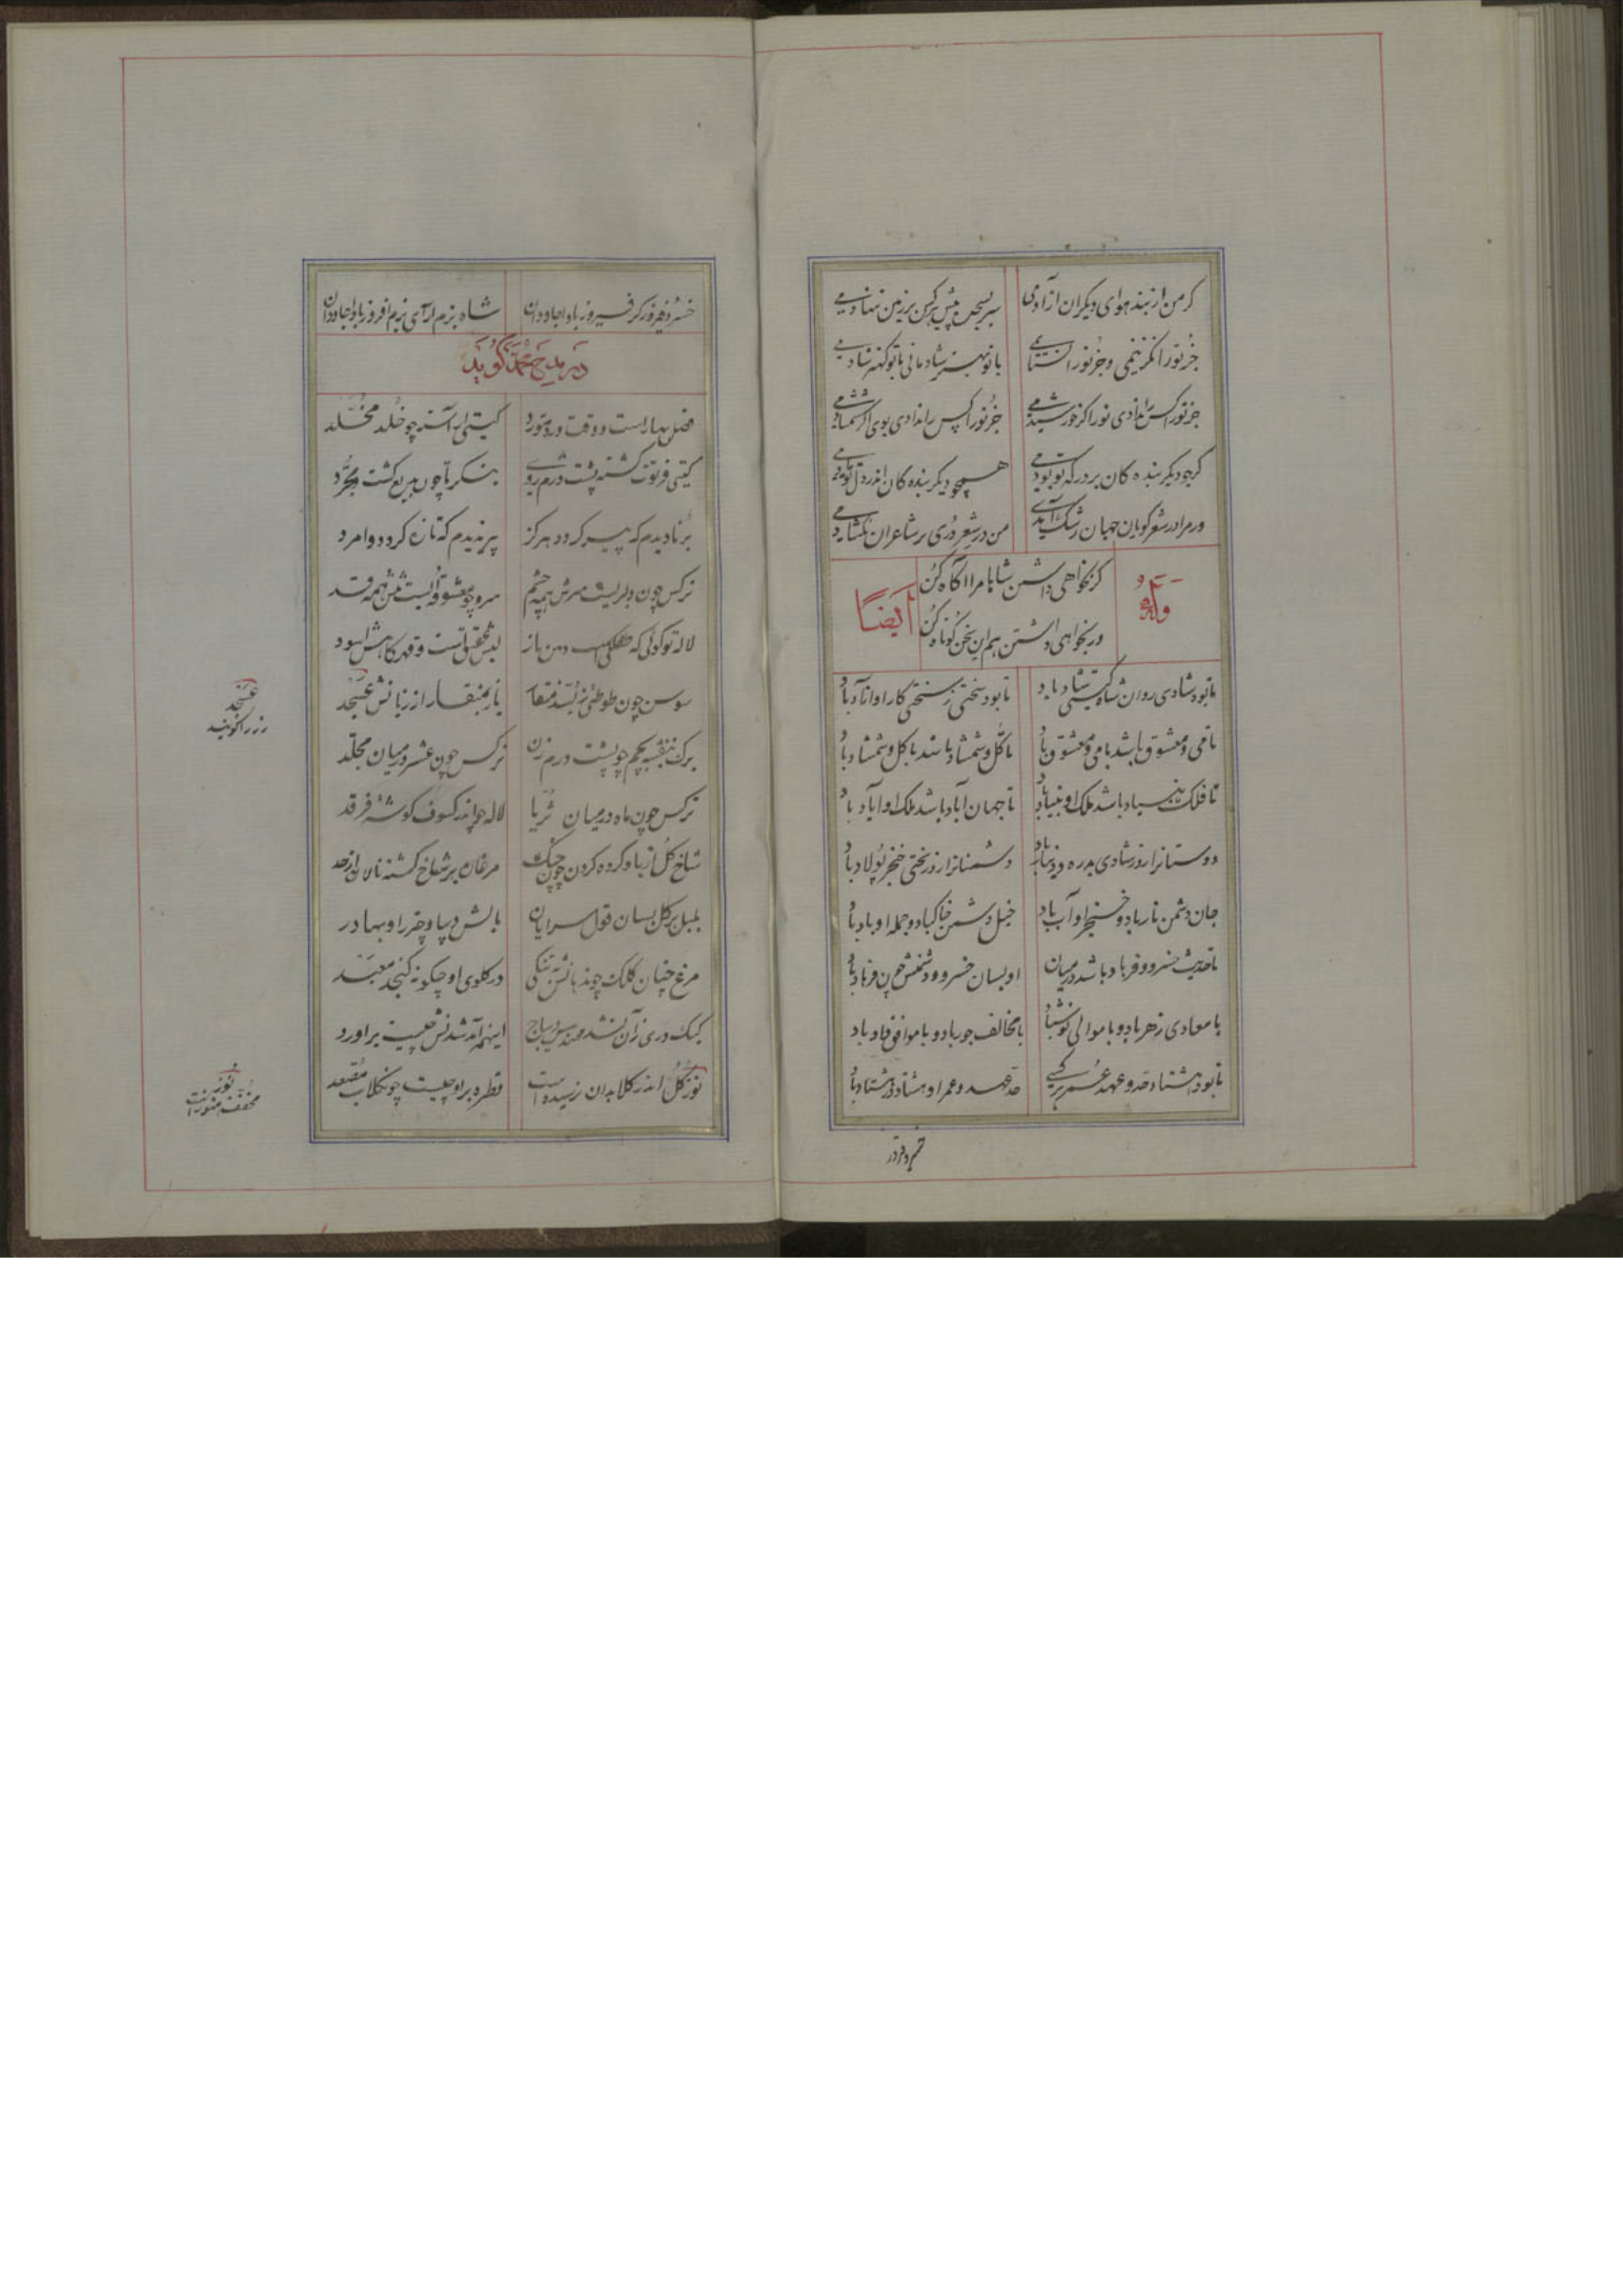 کر من از بند هوای دیکران ازادمی سر بسجده پیش هر کس بر زمین ننهادمی
جز تو را نکزینمی و جز تو را نستایمی با تو بهتر شادمانی با تو کهتر شادیمی
جز تو کس را ندادی نور اکر خورشیدمی جز تو را کس را ندادی بوی اکر شمشادمی
کر چو دیکر بنده کان بر درکه تو بودمی همچو دیکر بنده کان اندر دل تو
ور مرا در شعر کویان جهان رشک آیدی من در شعر دری بر شاعران نکشادمی
وله
کر نخواهی داشتن شاها مرا آکاه کن
ور بخواهی داشتن هم این سخن کوتاه کن
ایضا
تا بود شادی روان شاه کیتی شاد باد تا بود سختی ز سختی کار او آزاد باد
تا می و معشوق باشد با می و معشوق باد تا کل و شمشاد باشد با کل و شمشاد باد
تا فلک بنیاد باشد ملک او بنیاد باد تا جهان آباد باشد ملک او آباد باد
دوستانرا زو ز شادی بدره و دینار باد دشمنانرا زو ز سختی خنجر پولاد باد
جان دشمن نار باد و خنجر او آب باد خیل دشمن خاک باد و حمله او باد باد
تا حدیث خسرو و فرهاد باشد در میان او بسان خسرو و دشمنش چون فرهاد باد
با معادی زهر باد و با موالی نوش باد با مخالف جور باد و با موافق داد باد
تا بود هشتاد حد و عهد عمر هر کسی حد عهد و عمر او هشتاد در هشتاد باد
خسرو فیروزکر فیروز باد جاودان شاه بزم آرای بزم افروز باد جاودان
در مدح محمد کوید
فصل بهار است و وقت ورد مورد کیتی آراسته چو خلد مخلد
کیتی فرتوت کشته پشت درم روی بنکر تا چون بدیع کشت و مجرد
برنا دیدم که پیر کردد هرکز پیر ندیدم که تازه کردد و امرد
نرکس چون دلبریست سرش همه چشم سرو چو معشوقه ایست تنش همه قد
لاله تو کوئی که طفلکیست دهن باز لبش عقیق است و قعر کامش اسود
سوسن چون طوطئی ز بسد منقار باز بمنقار از زبانش عسجد
برک بنفشه بخم چو پشت درم زن نرکس چون عشر در میان مجلد
نرکس چون ماه در میان ثریا لاله چو اندر کسوف کوشه فرقد
شاخ کل از باد کرده کردن چون چنک مرغان بر شاخ کشته نالان از صد
بلبل بر کل بسان قول سرایان بالش دیبا و
مرغ چنان کلک چو نه بانش تنکی در کلوی او چکونه کنجد معبد
کبک دری کر نشد مهندس مساح اینهمه آمدشدنش چیست بر اورد
نور کل اندر کلابدان نرسیده است قطره بر او چیست چون کلاب مصعد
عسجد
زر را کویند
نور
مخفف منور است
خسرو فیروز